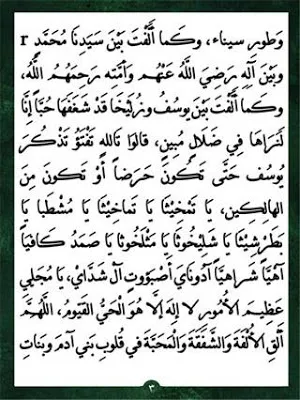 وَطور سيناء، وَكما أَلَّفْتَ بَيْنَ سَيِّدِنَا مُحَمَّدٍ r
وَبَيْنَ آلِهِ رَضِيَ اللَّهُ عَنْهُم وَأمَّتِه رَحِمَهُم اللَّهُ،
وَكما أَلَّفْتَ بَيْنَ يوسُفَ وزُلَيْخَا قَدْ شَغَفَهَا حُبّاً إِنَّا
لَنَرَاهَا فِي ضَلَالٍ مُبِينٍ، قالوا تَاللهِ تَفْتَؤُ تَذْكُرَ
يوسُفَ حَتَّى تَكونَ حَرَضاً أَوْ تَكونَ مِن
الهالِكين، يَا تَمْخِيْثَا يَا تَمَاخِيْثَا يَا مُشْطَبا يَا
بَطَرْشِيْثَا يَا شَلِيْخُوثَا يَا مَثْلَخُوثَا يَا صَمَدُ كَافِياً
آهِيَّا شَراهِيَّا آدوناي أَصْبَؤوت آل شَدَّاي، يَا مُجَلِّي
عَظِيمَ الأُمُورِ لا إِلهَ إِلَّا هُوَ الْحَيُّ القَيومُ، اللَّهُمَّ
أَلْقِ الأُلْفَةَ وَالشَّفَقَةَ وَالْمَحَبَّةَ في قُلوبِ بَني آدمَ وَبناتِ
٣